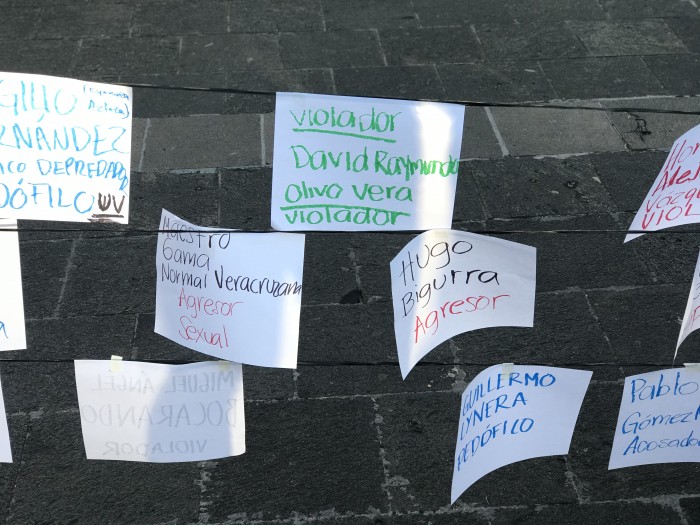 RNANDEZ
ICO DEPREDADOR
DÓFILO UV
violador
David Raymundo
oliva vera
violador
Maestro
Gama
Normal Veracruzana
Agresor
Sexual
Hugo
Bigurra
Agresor
VIOL
MIGUEL ÁNGEL
BOCARANDO
VIOLADOR
GUILLERMO
LYNERA
PEDÓFILO
Pablo
Gómez
Acosado